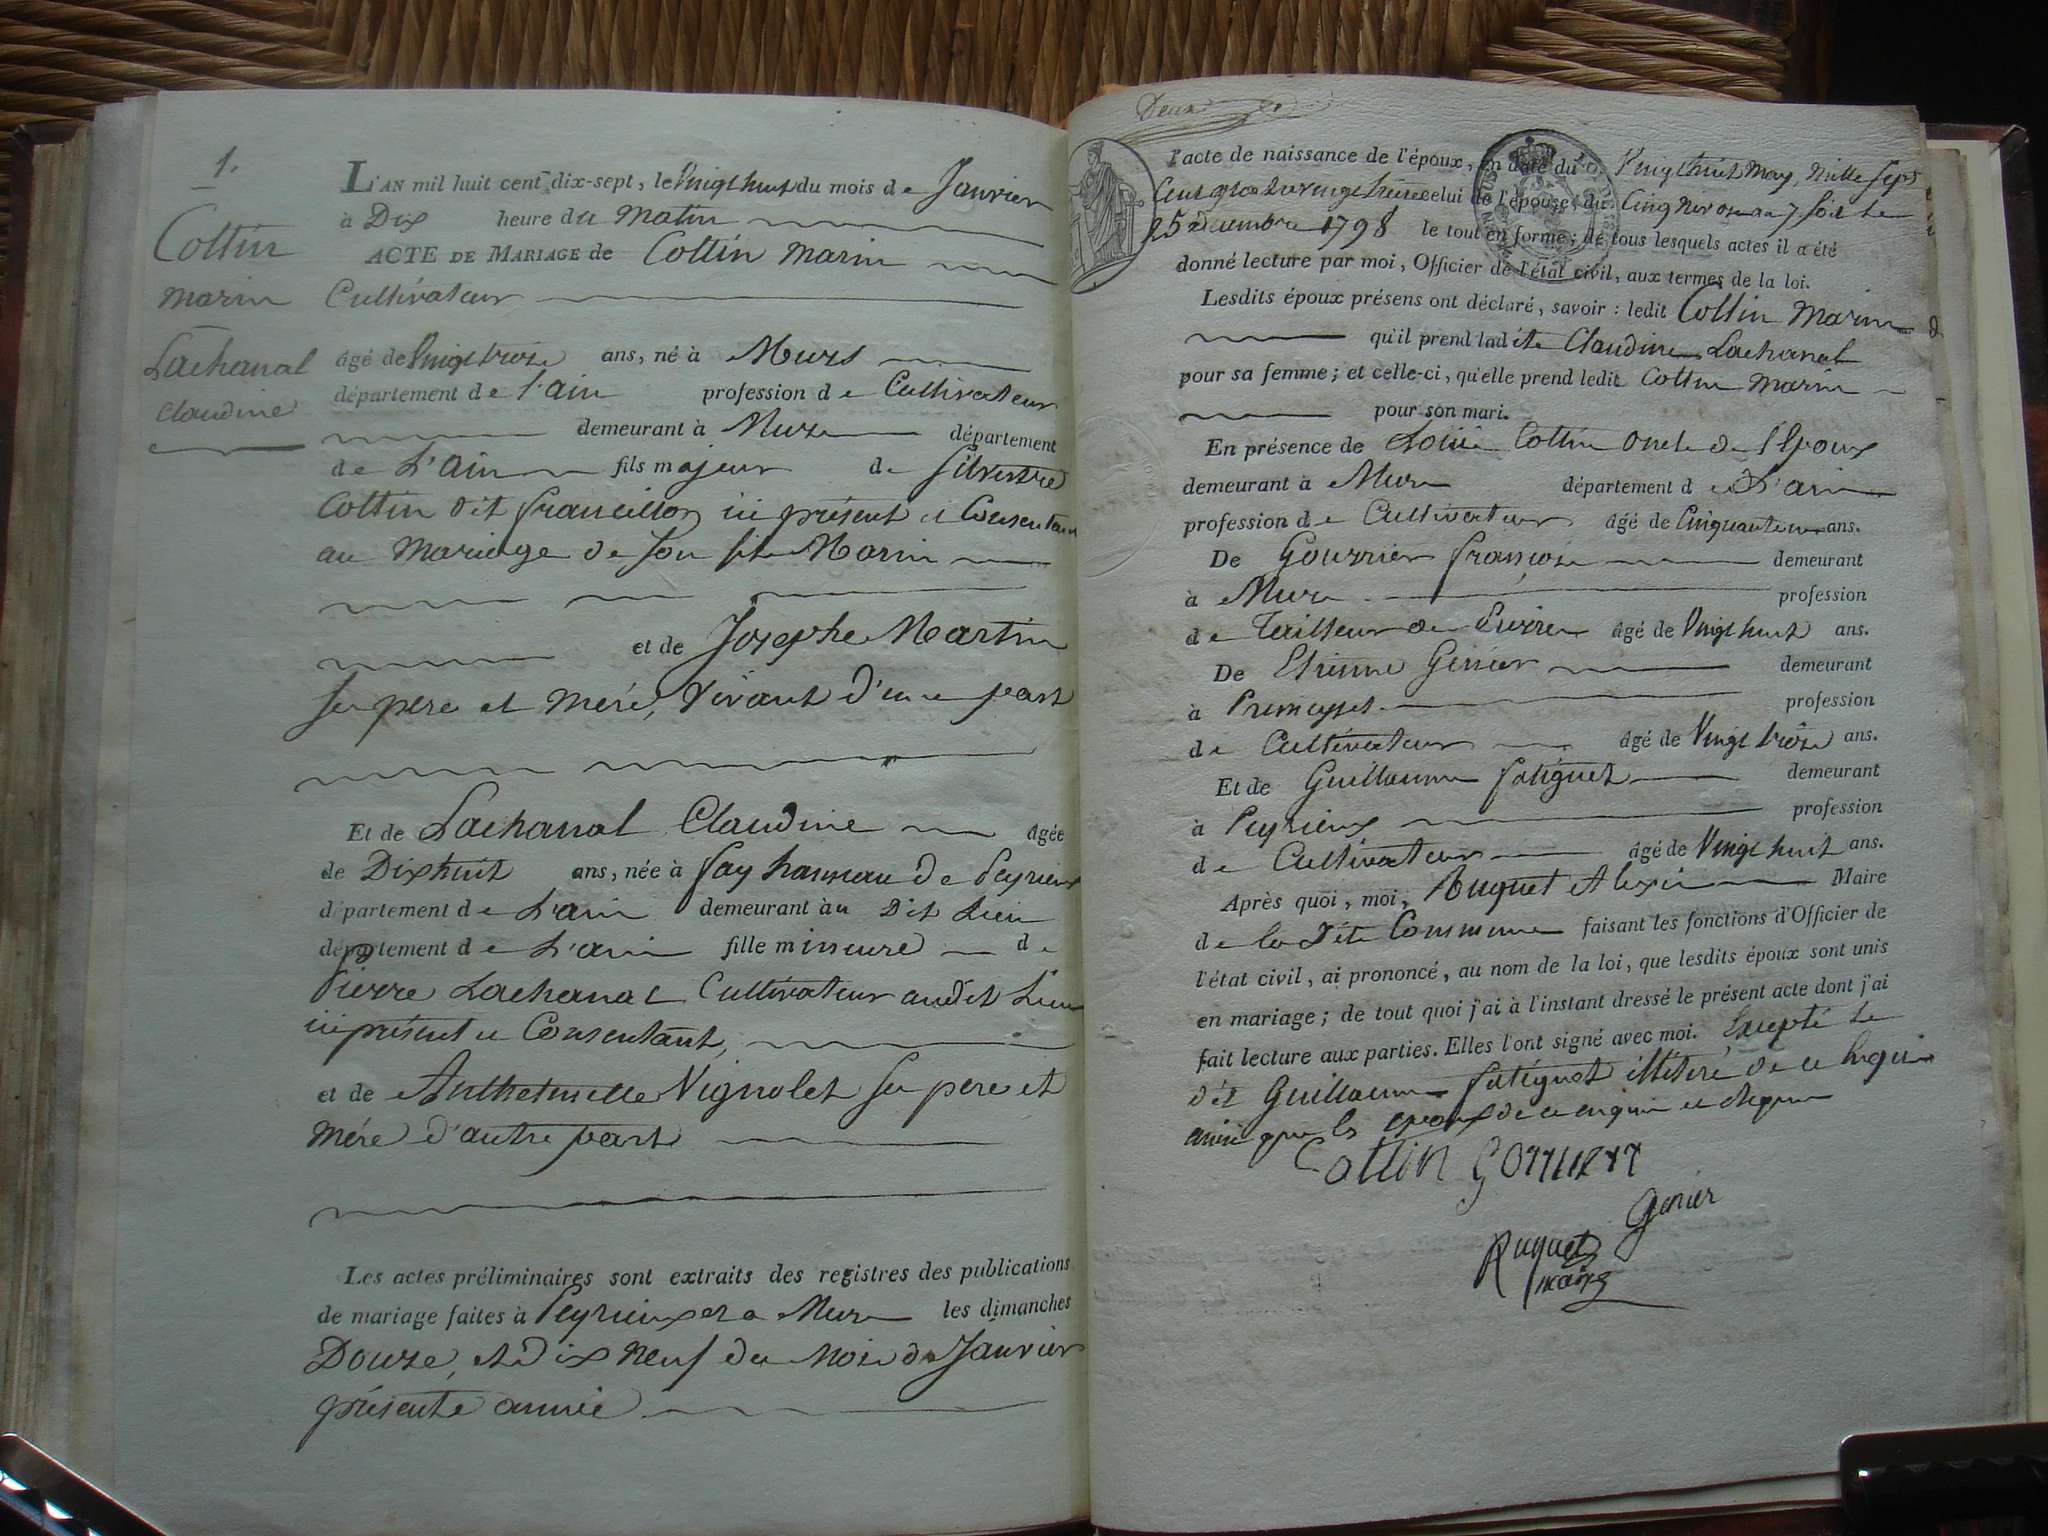 1.
Cottin
Marin
Lachanal
Claudine
L'AN mil huit cent dix-sept, le Vingt huit du mois de Janvier
à Dix heure du Matin
ACTE DE MARIAGE de Cottin Marin
Cultivateur
âgé de Vingt trois ans, né à Murs
département de l'ain profession de Cultivateur
demeurant à Murs département
de L'ain fils majeur de Silvestre
Cottin dit francillon ici présent et Consentant
au Mariage de son fils Marin
et de Josephe Martin
ses pere et Mére, Vivant d'une part
Et de Lachanal Claudine âgée
de Dixhuit ans, née à fay hameau de Peyrieux
département de L'ain demeurant au Dit Lieu
département de L'ain fille mineure de
Pierre Lachanal Cultivateur audit Lieu
ici présent et Consentant,
et de Anthelmette Vignolet ses pere et
Mére d'autre part
Les actes préliminaires sont extraits des registres des publications
de mariage faites à Peyrieux et a Murs les dimanches
Douze, et dix neuf du Mois de Janvier
présente année
Deux
l'acte de naissance de l'époux, en date du Vingt huit May, Mille sept
Cent quatre vingt treize celui de l'épouse, du Cinq Nivose an 7 soit le
25 decembre 1798 le tout en forme; de tous lesquels actes il a été
donné lecture par moi, Officier de l'état civil, aux termes de la loi.
Lesdits époux présens ont déclaré, savoir: ledit Cottin Marin
qu'il prend ladite Claudine Lachanal
pour sa femme; et celle-ci, qu'elle prend ledit Cottin Marin
pour son mari.
En présence de Louis Cottin oncle de l'Epoux
demeurant à Murs département de L'ain
profession de Cultivateur âgé de Cinquante ans.
De Gourrier françois demeurant
à Murs profession
de Tailleur de Pierre âgé de Vingt huit ans.
De Etienne Genier demeurant
à Premeyzel profession
de Cultivateur âgé de Vingt trois ans.
Et de Guillaume fatiguet demeurant
à Peyrieux profession
de Cultivateur âgé de Vingt huit ans.
Après quoi, moi, Ruguet Alexis Maire
de la dite Commune faisant les fonctions d'Officier de
l'état civil, ai prononcé, au nom de la loi, que lesdits époux sont unis
en mariage; de tout quoi j'ai à l'instant dressé le présent acte dont j'ai
fait lecture aux parties. Elles l'ont signé avec moi. Excepté le
dit Guillaume fatiguet illitéré de ce Requis
ainsi que les epoux de ce enquis et Requis
Cottin Gourier
Genier
Ruguet
maire